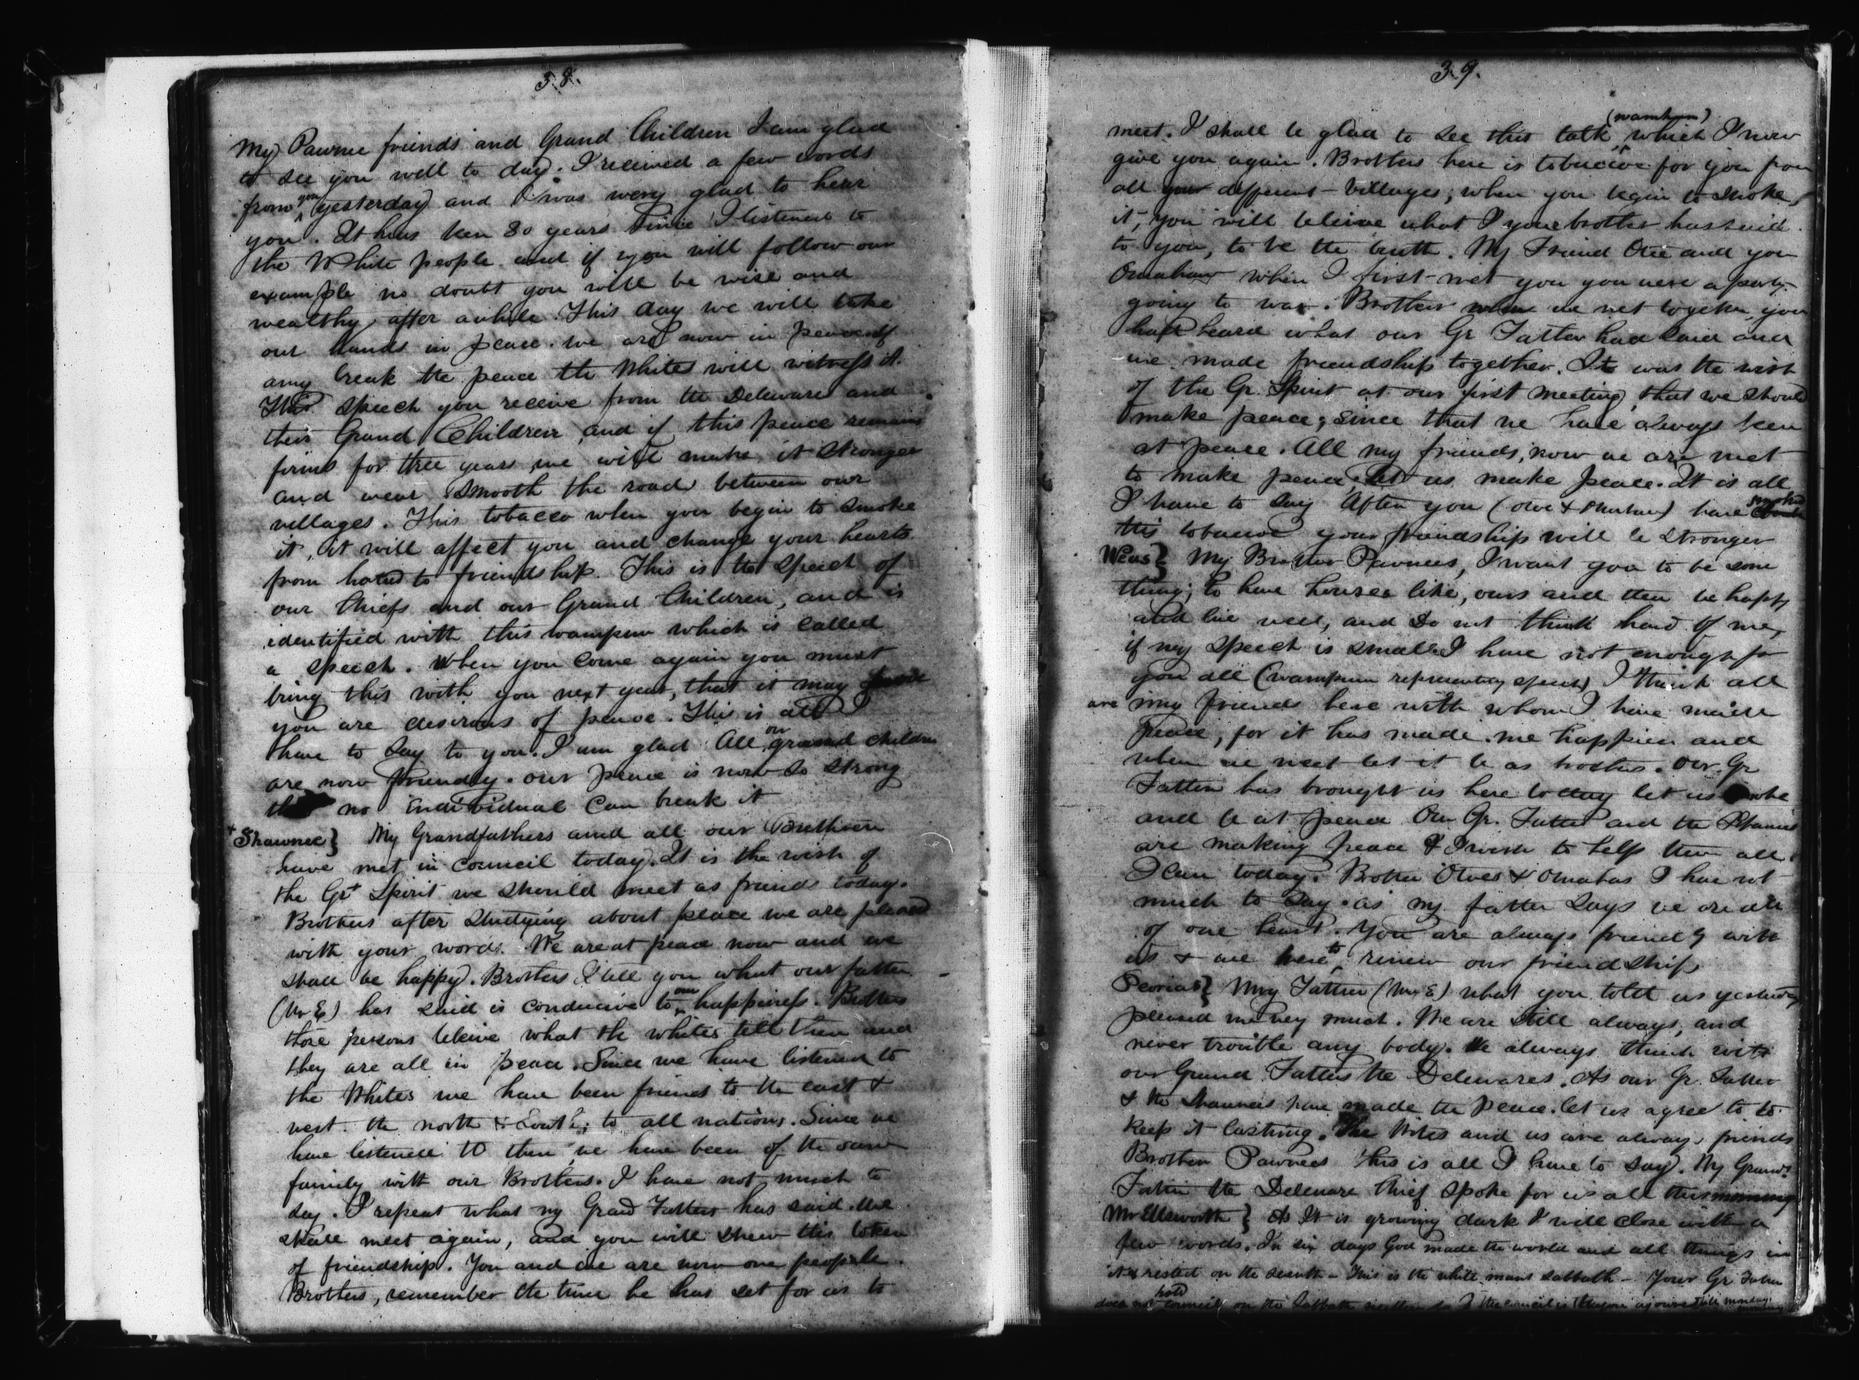 38.
My Pawnee friends and Grand Children I am glad
to see you well to day. I received a few words
from you yesterday and I was very glad to hear
you. It has ken 30 years Since I listened to
the White people and if you will follow our
example no doubt you will be wise and
wealthy after awhile This day we will take
our hands in peace. we are now in peace if
any break the peace the Whites will witness it.
This speech you receive from the Delaware and
their Grand Children, and if this peace remains
firm for three years, we will make it stronger
and wear Smooth the road between our
villages. This tobacco when you begin to smoke
it, it will affect you and change your hearts
from hatred to friendship. This is the speech of
our Chiefs and our Grand Children, and is
identified with this wampum which is called
a speech. When you come again you must
bring this with you next year, that it may
you are desirous of peace. This is all I
have to Say to you. I am glad All our grand children
are now friendly. our peace is now so strong
that no individual Can break it
+ Shawnee} My Grandfathers and all our Brethren
have met in council today. It is the wish of
the Grt Spirit we should meet as friends today.
Brothers after studying about peace we are pleased
with your words. We are at peace now and we
shall be happy. Brothers I tell you what our father
(Mr E) has said is conducive to our happiness. Brothers
those persons believe what the whites tell them and
they are all in peace. Since we have listened to
the Whites we have been friends to the east &
west. the north & South; to all nations. Since we
have listened to them we have been of the same
family with our Brothers. I have not much to
say. I repeat what my Grand Fathers has said. We
shall meet again, and you will shew this token
of friendship. You and we are now one people.
Brothers, remember the time he has set for us to
39.
meet. I shall be glad to see this talk (wampum) which I now
give you again. Brothers here is tobacco for you from
all your different Villages; when you begin to smoke
it, you will beleive what I your brother has said
to you, to be the truth. My Friend Otoe and you
Omahaw when I first met you you were a party
going to war. Brothers when we met together, you
had heard what our Gr Father had said and
we made friendship together. It was the wish
of the Gr. Spirit at our first meeting, that we should
make peace; since that we have always ken
at peace. All my friends, now we are met
to make peace, let us make peace. It is all
I have to say After you (Otoe & Omahaw) have smoked
this tobacco your friendship will be stronger
Weas} My Brother Pawnees, I want you to be some
thing; to have houses like, ours and then be happy
and live well, and do not think hard of me,
if my speech is small I have not enough for
you all (wampum representing speech) I think all
are my friends here with whom I have made
Peace, for it has made me happier and
when we meet let it be as brothers. Our Gr
Father has brought us here today let us smoke
and be at peace Our Gr. Father and the Shawnees
are making peace & I wish to help them all
I can today. Brother Otoes & Omahas I have not
much to say. as my father Says we are all
of one heart. You are always friendly with
us & we here to renew our friendship
Peorias} My Father (Mr E) what you told us yesterday
pleased me very much. We are still always, and
never trouble any body. We always think with
our Grand Fathers the Delewares. As our Gr. Father
& the Shawnees have made the peace. let us agree to
keep it lasting. The Otoes and us are always friends
Brother Pawnees this is all I have to say. My Grand
Father the Deleware Chief spoke for us all this morning
Mr Ellsworth} As It is growing dark I will close with a
few words. In six days God made the world and all things in
it & rested on the seventh - This is the white mans Sabbath - Your Gr Father
does not hold council on the Sabbath